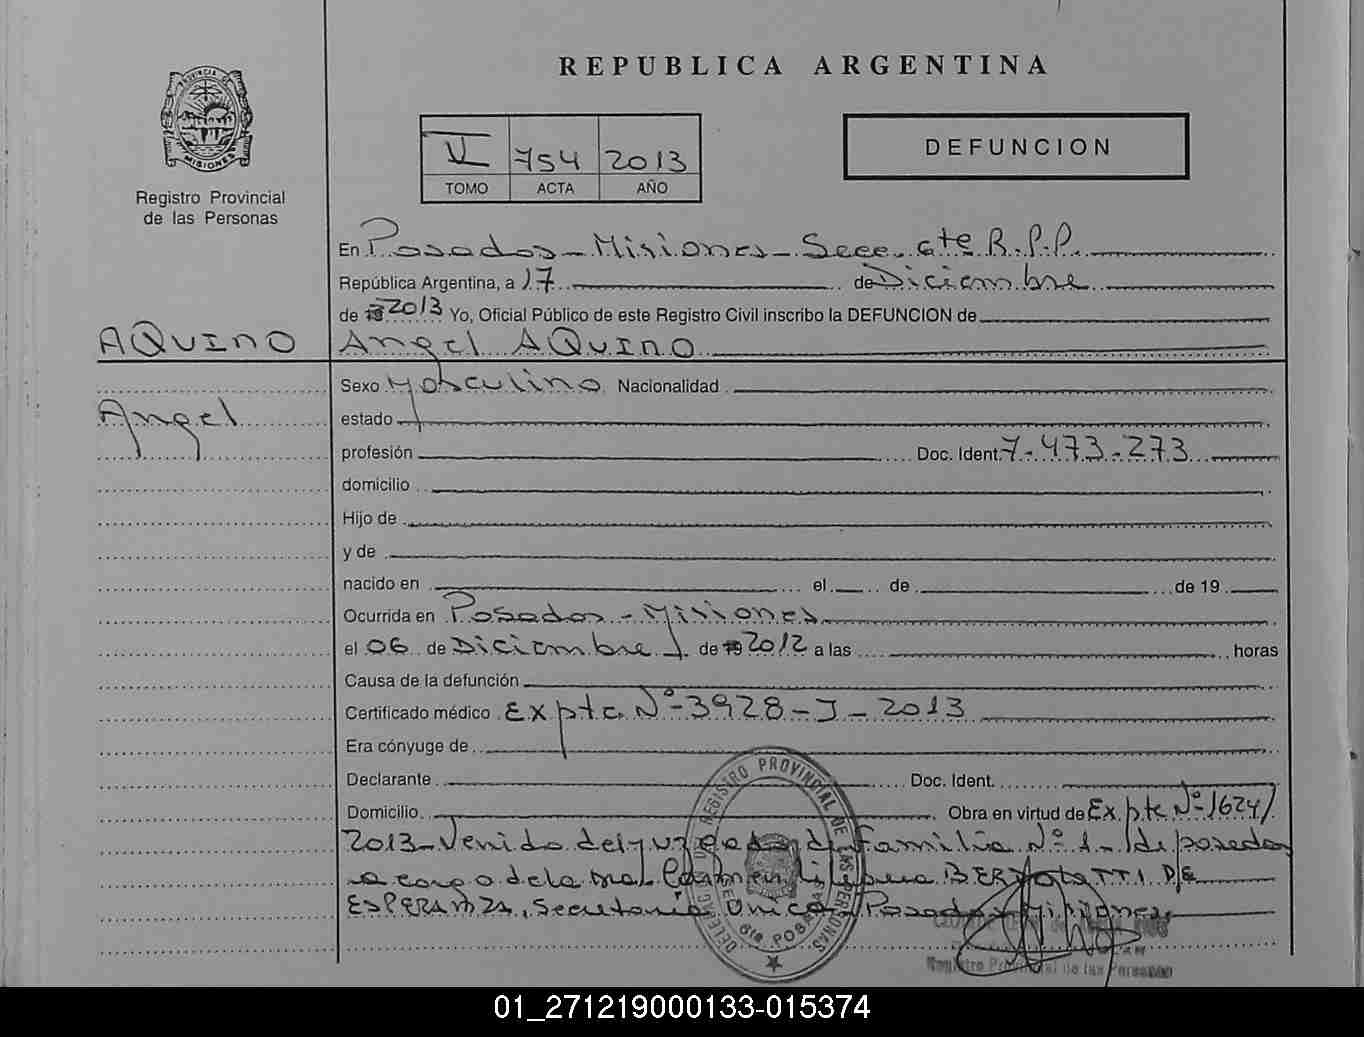 REPUBLICA ARGENTINA
PROVINCIA DE
MISIONES
Registro Provincial
de las Personas
VI 754 2013
TOMO ACTA AÑO
DEFUNCION
En Posadas - Misiones - Secc. 6te R.P.P.
República Argentina, a 17 de Diciembre
de 19 2013 Yo, Oficial Público de este Registro Civil inscribo la DEFUNCION de
AQUINO Angel AQUINO
Sexo Masculino Nacionalidad
Angel
estado
profesión Doc. Ident. 7-473-273
domicilio
Hijo de
y de
nacido en el de de 19
Ocurrida en Posadas - Misiones
el 06 de Diciembre de 19 2012 a las horas
Causa de la defunción
Certificado médico Expte Nº 3928-J-2013
Era cónyuge de
Declarante Doc. Ident.
Domicilio Obra en virtud de Expte Nº 1624/
2013 - Venido del Juzgado de Familia Nº 1 - de posadas
a cargo de la Dra. Carmen de
ESPERANZA, Secretaria Unica - Posadas - Misiones
REGISTRO PROVINCIAL DE LAS PERSONAS
6ta POSADAS
Registro Provincial de las Personas
01_271219000133-015374